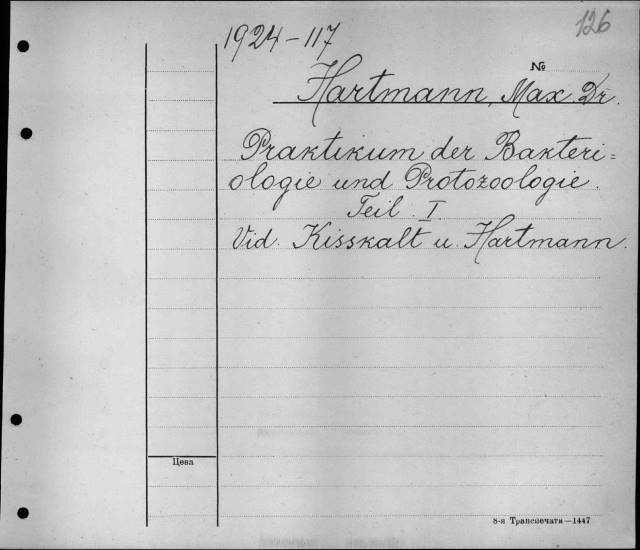 126
1924-117
№
Hartmann, Max Dr.
Praktikum der Bakteri=
ologie und Protozoologie.
Teil I
Vid. Kisskalt u. Hartmann.
Цена
8-я Транспечать—1447